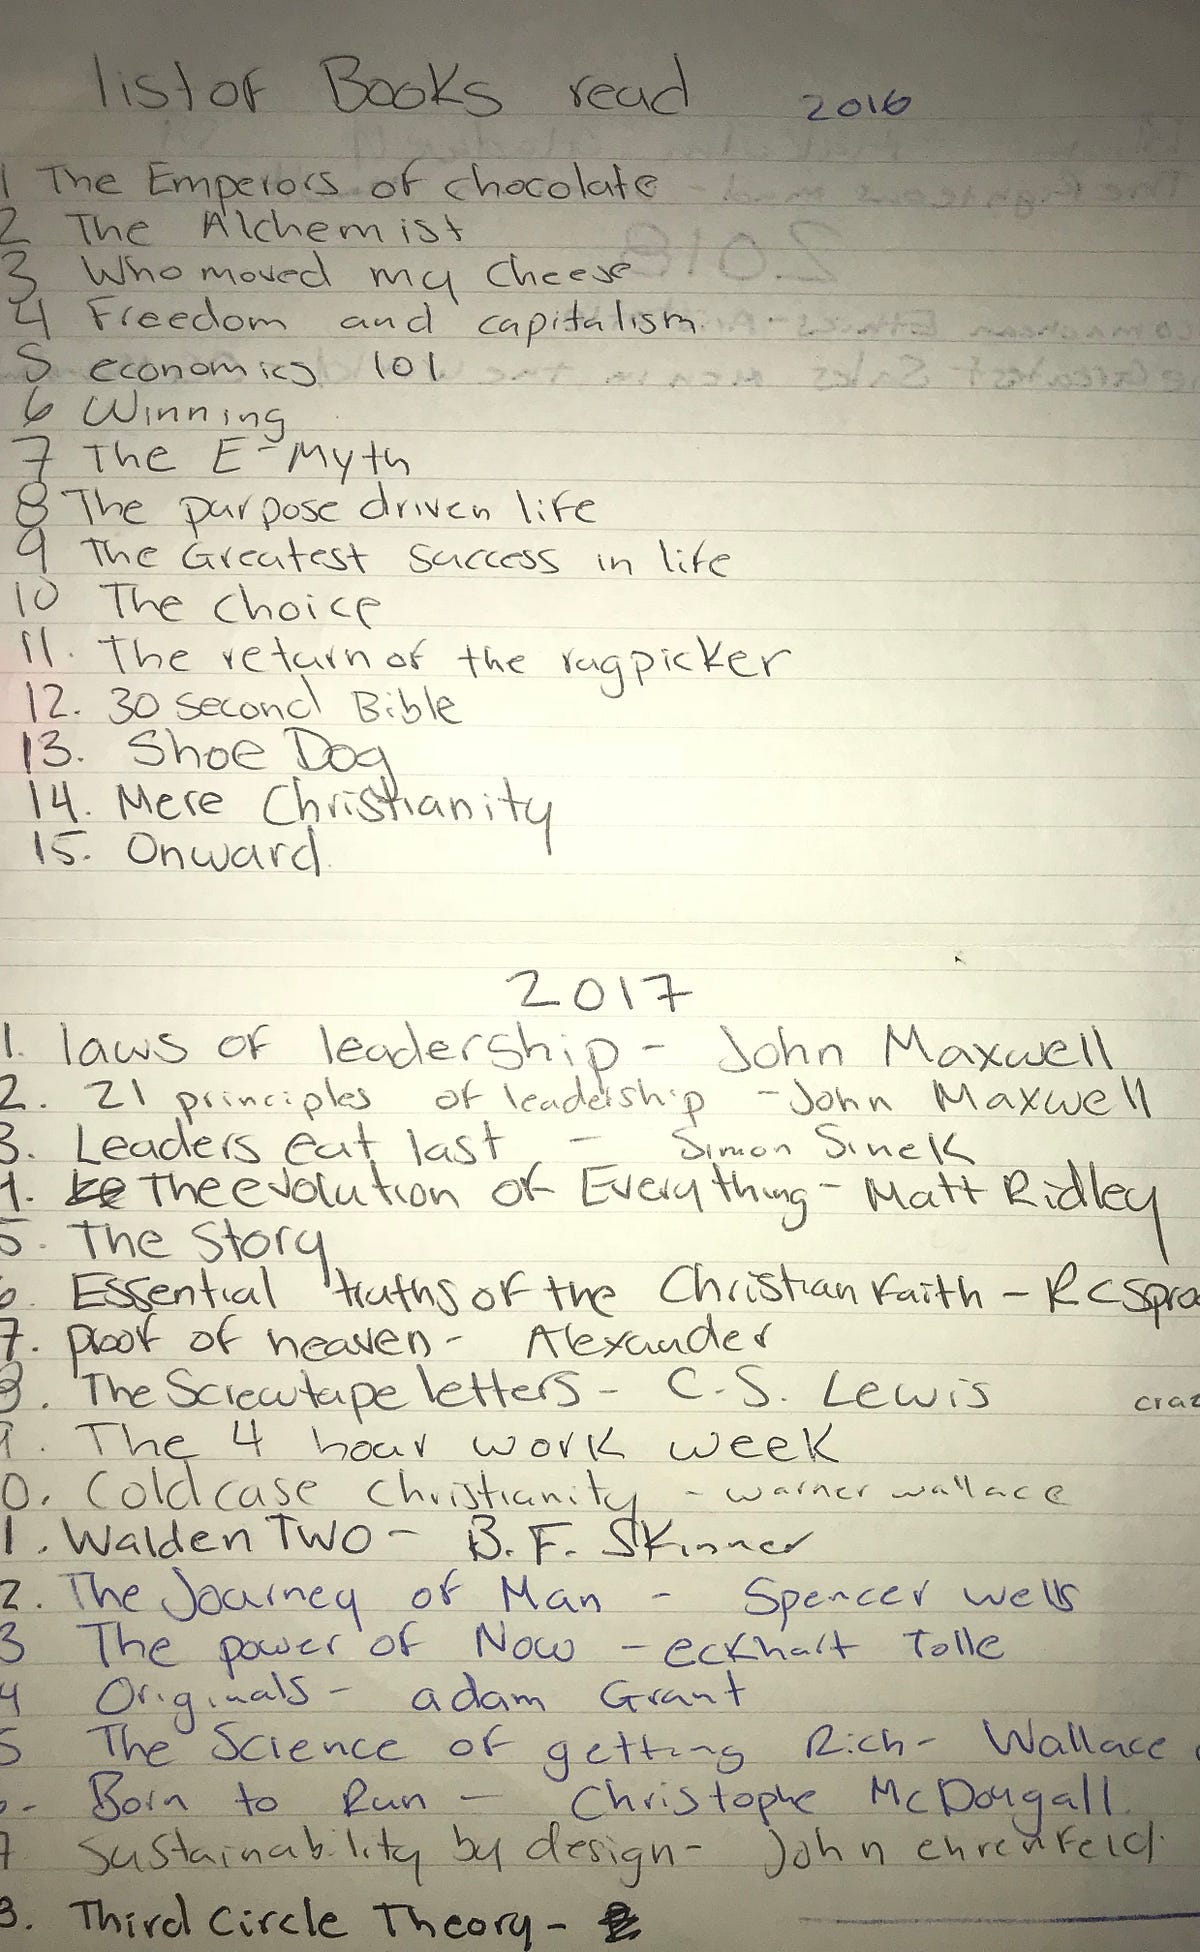 list of Books read 2016
1 The Emperors of chocolate
2 The Alchemist
3 Who moved my Cheese
4 Freedom and capitalism
5 economics 101
6 Winning
7 The E-Myth
8 The purpose driven life
9 The Greatest Success in life
10 The choice
11. The return of the ragpicker
12. 30 second Bible
13. Shoe Dog
14. Mere Christianity
15. Onward
2017
1. laws of leadership - John Maxwell
2. 21 principles of leadership - John Maxwell
3. Leaders eat last - Simon Sinek
4. The evolution of Everything - Matt Ridley
5. The Story
6. Essential truths of the Christian Faith - RC Spro
7. proof of heaven - Alexander
8. The Screwtape letters - C.S. Lewis craz
9. The 4 hour work week
0. Cold case christianity - warner wallace
1. Walden Two - B.F. Skinner
2. The Journey of Man - Spencer wells
3 The power of Now - eckhart Tolle
4 Originals - adam Grant
5 The Science of getting Rich - Wallace
6- Born to Run - Christophe McDougall
7 Sustainability by design - John ehrenfeld
8. Third Circle Theory -